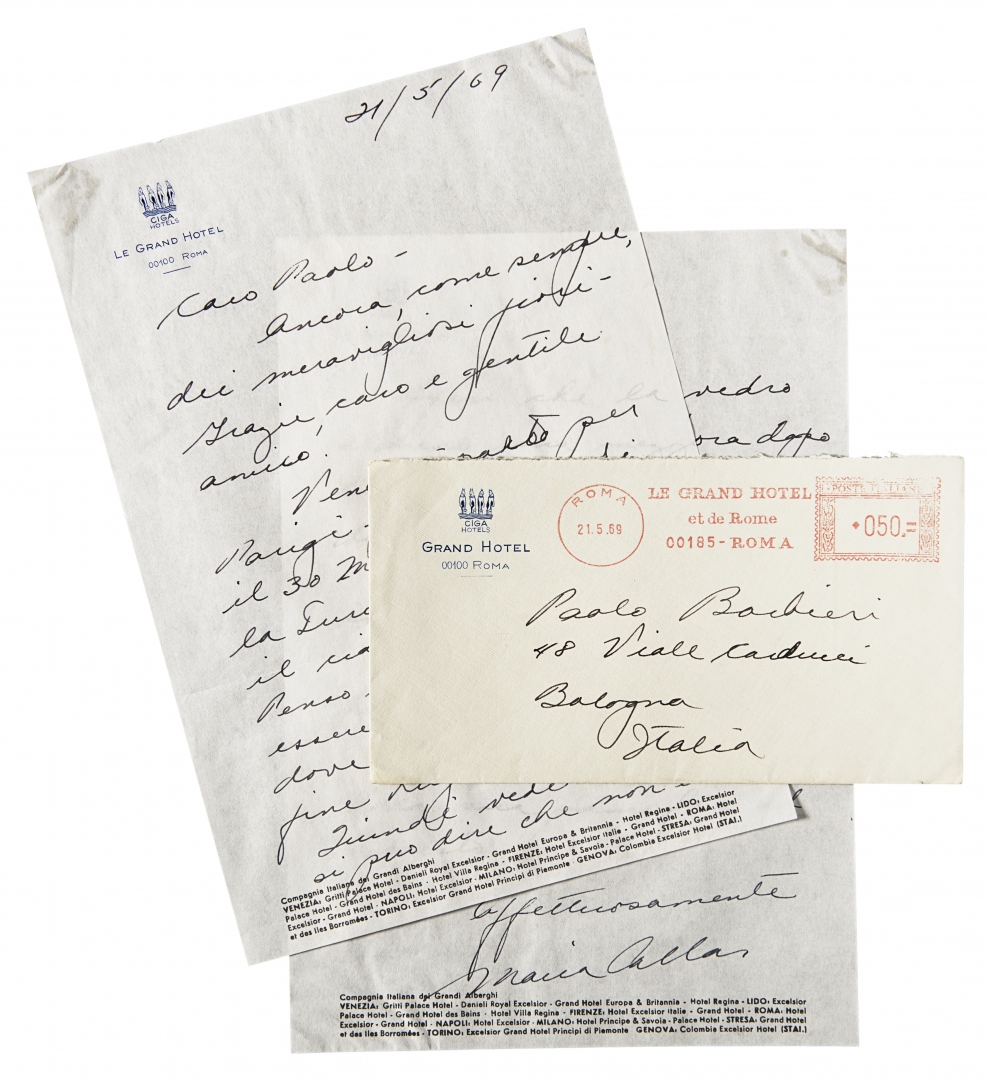 21/5/69
CIGA
HOTELS
LE GRAND HOTEL
00100 ROMA
Caro Paolo -
Ancora, come sempre,
dei meravigliosi fiori -
Grazie, caro e gentile
amico.
per
Parigi
il 30 M
la
il
Penso
essere
dove
fine
Quindi vede
si può dire che non
Compagnia Italiana dei Grandi Alberghi
VENEZIA: Gritti Palace Hotel - Danieli Royal Excelsior - Grand Hotel Europa & Britannia - Hotel Regina - LIDO: Excelsior
Palace Hotel - Grand Hotel des Bains - Hotel Villa Regina - FIRENZE: Hotel Excelsior Italie - Grand Hotel - ROMA: Hotel
Excelsior - Grand Hotel - NAPOLI: Hotel Excelsior - MILANO: Hotel Principe & Savoia - Palace Hotel - STRESA: Grand Hotel
et des Iles Borromées - TORINO: Excelsior Grand Hotel Principi di Piemonte GENOVA: Colombia Excelsior Hotel (STAI.)
che la vedro
dopo
affettuosamente
Maria Callas
Compagnia Italiana dei Grandi Alberghi
VENEZIA: Gritti Palace Hotel - Danieli Royal Excelsior - Grand Hotel Europa & Britannia - Hotel Regina - LIDO: Excelsior
Palace Hotel - Grand Hotel des Bains - Hotel Villa Regina - FIRENZE: Hotel Excelsior Italie - Grand Hotel - ROMA: Hotel
Excelsior - Grand Hotel - NAPOLI: Hotel Excelsior - MILANO: Hotel Principe & Savoia - Palace Hotel - STRESA: Grand Hotel
et des Iles Borromées - TORINO: Excelsior Grand Hotel Principi di Piemonte GENOVA: Colombia Excelsior Hotel (STAI.)
CIGA
HOTELS
GRAND HOTEL
00100 ROMA
ROMA
21.5.69
LE GRAND HOTEL
et de Rome
00185-ROMA
POSTE ITALIANE
050.=
Paolo Barbieri
48 Viale Carducci
Bologna
Italia